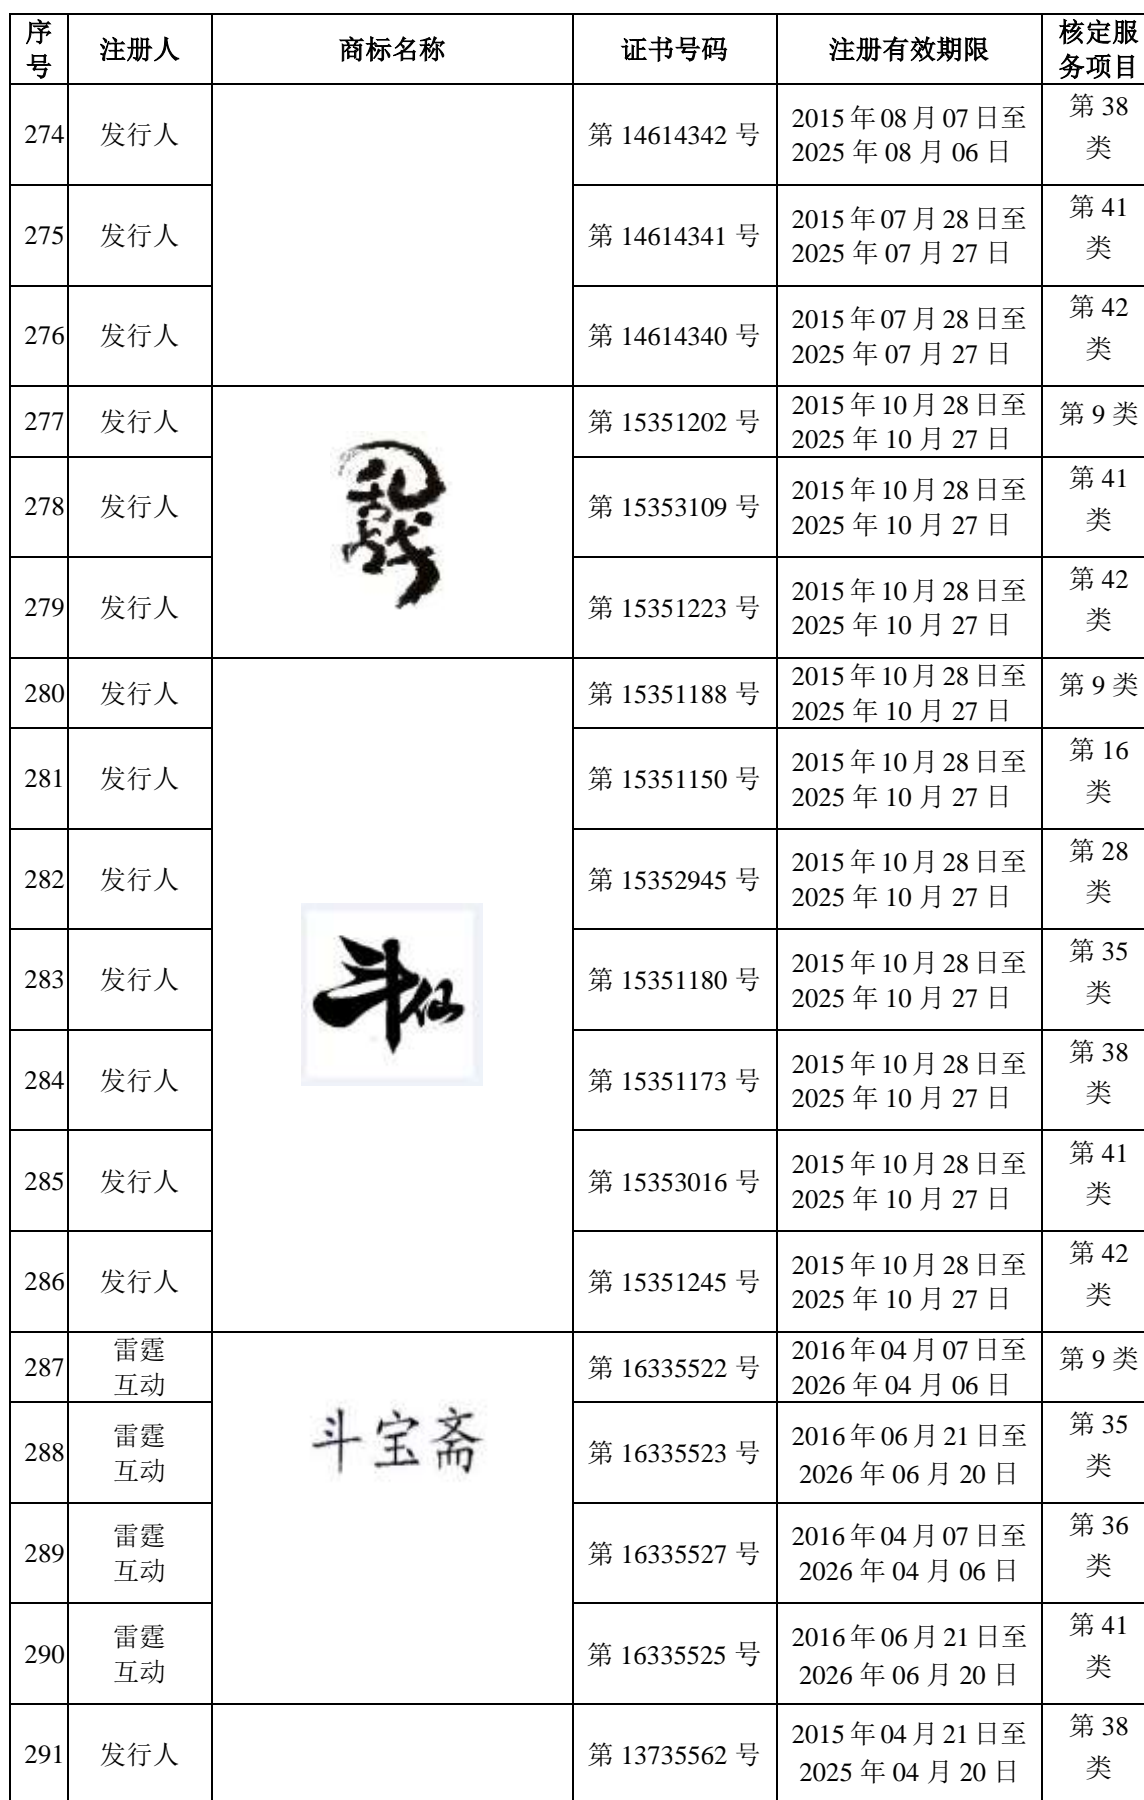 序号 注册人 商标名称 证书号码 注册有效期限 核定服务项目
274 发行人 第 14614342 号 2015 年 08 月 07 日至 2025 年 08 月 06 日 第 38 类
275 发行人 第 14614341 号 2015 年 07 月 28 日至 2025 年 07 月 27 日 第 41 类
276 发行人 第 14614340 号 2015 年 07 月 28 日至 2025 年 07 月 27 日 第 42 类
277 发行人 第 15351202 号 2015 年 10 月 28 日至 2025 年 10 月 27 日 第 9 类
乱战
278 发行人 第 15353109 号 2015 年 10 月 28 日至 2025 年 10 月 27 日 第 41 类
279 发行人 第 15351223 号 2015 年 10 月 28 日至 2025 年 10 月 27 日 第 42 类
280 发行人 第 15351188 号 2015 年 10 月 28 日至 2025 年 10 月 27 日 第 9 类
281 发行人 第 15351150 号 2015 年 10 月 28 日至 2025 年 10 月 27 日 第 16 类
282 发行人 第 15352945 号 2015 年 10 月 28 日至 2025 年 10 月 27 日 第 28 类
283 发行人 斗仙 第 15351180 号 2015 年 10 月 28 日至 2025 年 10 月 27 日 第 35 类
284 发行人 第 15351173 号 2015 年 10 月 28 日至 2025 年 10 月 27 日 第 38 类
285 发行人 第 15353016 号 2015 年 10 月 28 日至 2025 年 10 月 27 日 第 41 类
286 发行人 第 15351245 号 2015 年 10 月 28 日至 2025 年 10 月 27 日 第 42 类
287 雷霆互动 第 16335522 号 2016 年 04 月 07 日至 2026 年 04 月 06 日 第 9 类
288 雷霆互动 斗宝斋 第 16335523 号 2016 年 06 月 21 日至 2026 年 06 月 20 日 第 35 类
289 雷霆互动 第 16335527 号 2016 年 04 月 07 日至 2026 年 04 月 06 日 第 36 类
290 雷霆互动 第 16335525 号 2016 年 06 月 21 日至 2026 年 06 月 20 日 第 41 类
291 发行人 第 13735562 号 2015 年 04 月 21 日至 2025 年 04 月 20 日 第 38 类